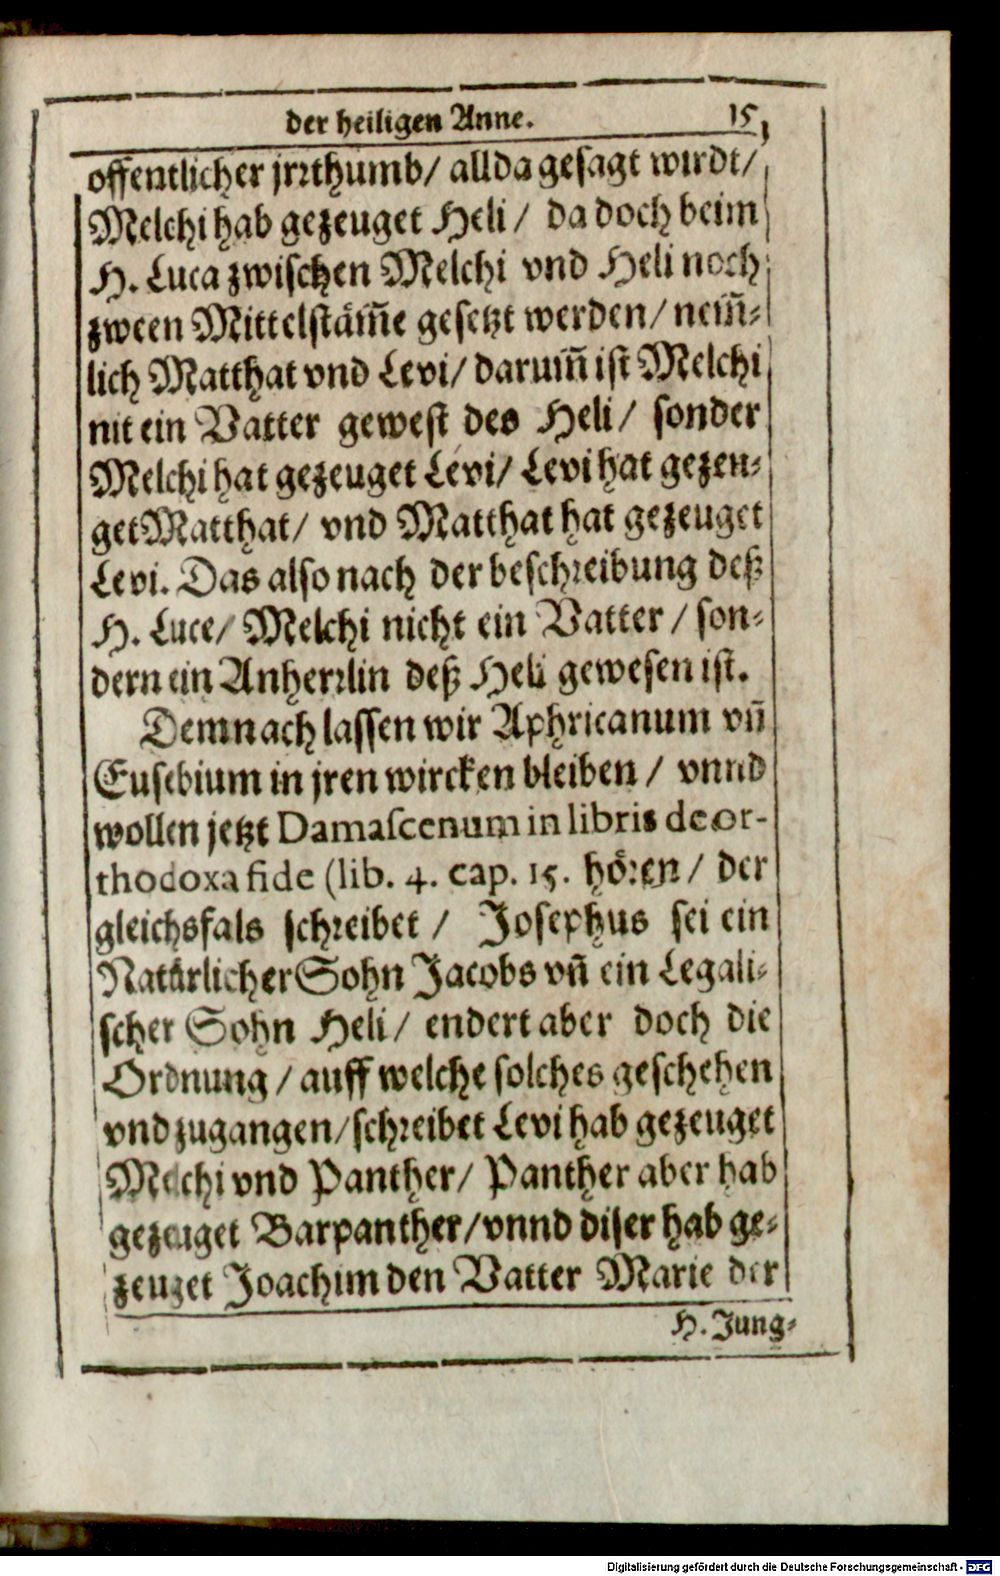 der heiligen Anne. 15
offentlicher jrrthumb/ allda gesagt wirdt/
Melchi hab gezeuget Heli/ da doch beim
H. Luca zwischen Melchi vnd Heli noch
zween Mittelstäm̃e gesetzt werden/ nem̃-
lich Matthat vnd Levi/ darum̃ ist Melchi
nit ein Vatter gewest des Heli/ sonder
Melchi hat gezeuget Levi/ Levi hat gezen-
get Matthat/ vnd Matthat hat gezeuget
Levi. Das also nach der beschreibung deß
H. Luce/ Melchi nicht ein Vatter/ son-
dern ein Anherrlin deß Heli gewesen ist.
Demnach lassen wir Aphricanum vñ
Eusebium in jren wircken bleiben/ vnnd
wollen jetzt Damascenum in libris de or-
thodoxa fide (lib. 4. cap. 15. hören/ der
gleichsfals schreibet/ Josephus sei ein
Natürlicher Sohn Jacobs vñ ein Legali-
scher Sohn Heli/ endert aber doch die
Ordnung/ auff welche solches geschehen
vnd zugangen/ schreibet Levi hab gezeuget
Melchi vnd Panther/ Panther aber hab
gezeuget Barpanther/ vnnd diser hab ge-
zeuget Joachim den Vatter Marie der
H. Jung-
Digitalisierung gefördert durch die Deutsche Forschungsgemeinschaft - DFG